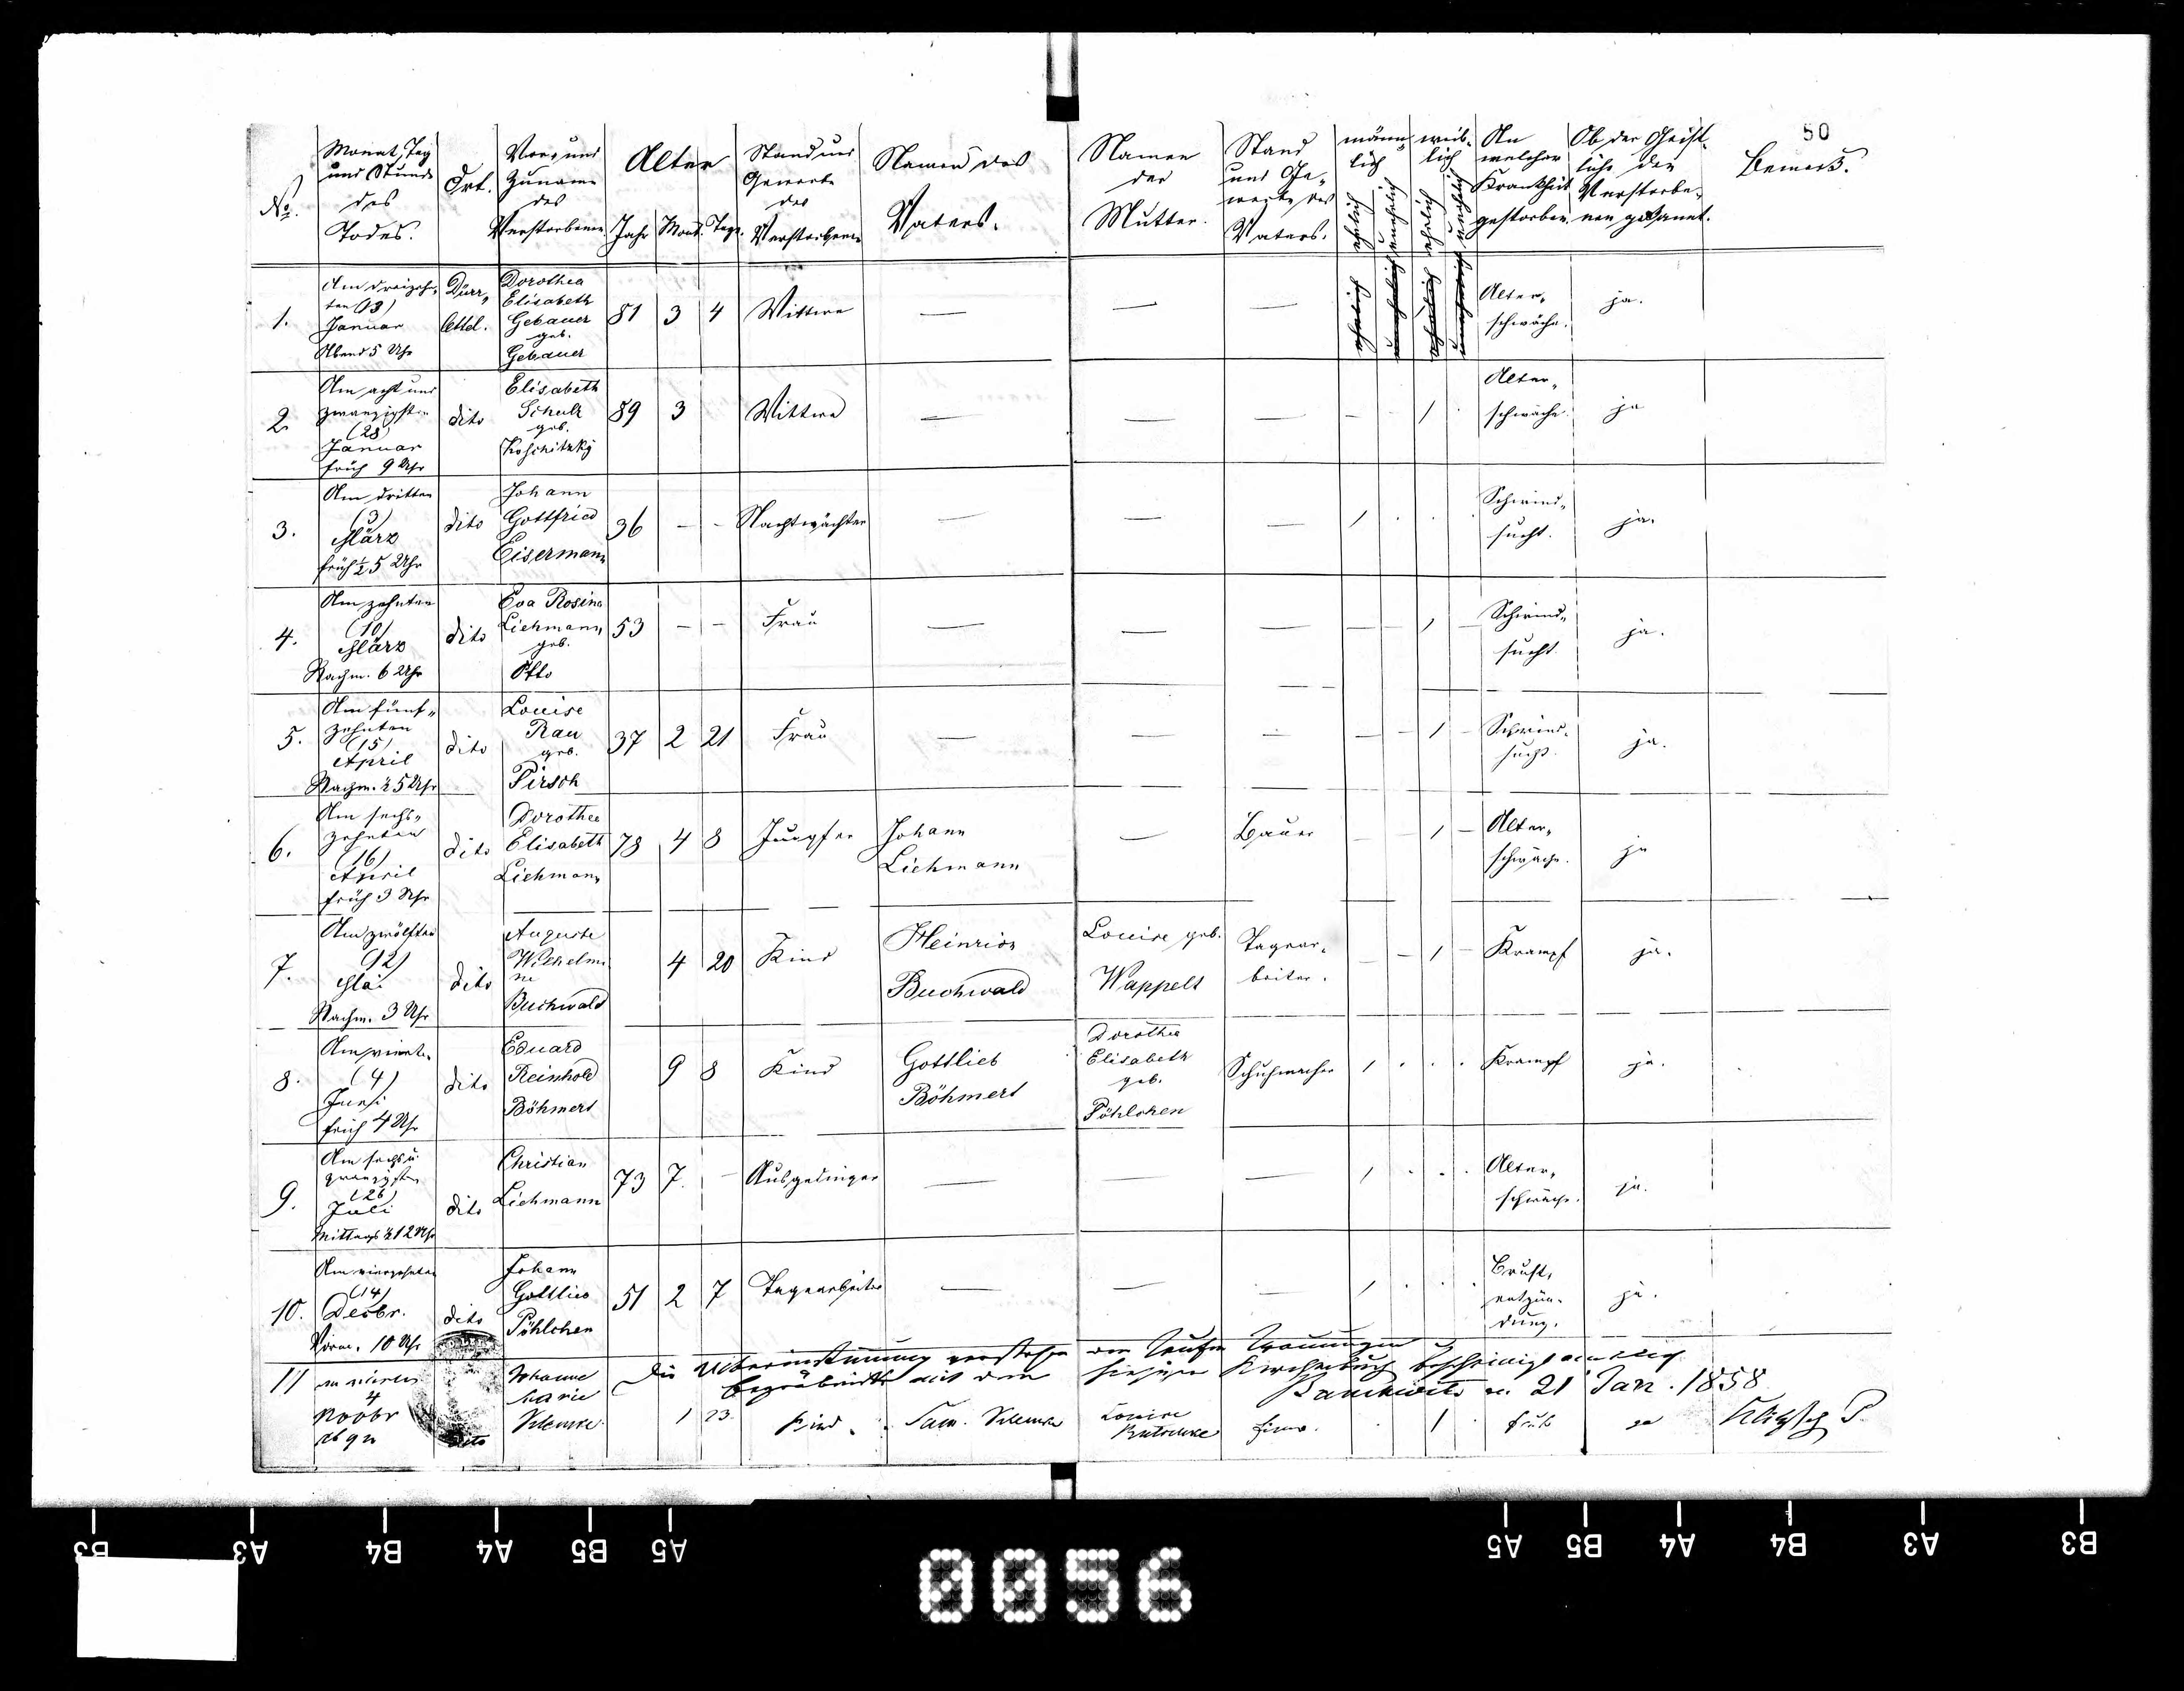 50
No.
Monat, Tag
und Stunde
des
Todes.
Ort.
Vor- und
Zuname
des
Verstorbenen.
Alter
Jahr Mont. Tage.
Stand und
Gewerbe
des
Verstorbenen
Namen des
Vaters.
Namen
der
Mutter.
Stand
und Ge-
werbe des
Vaters.
männ-
lich
ehelich
unehelich
weib-
lich
ehelich
unehelich
An
welcher
Krankheit
gestorben.
Ob der Geist-
liche den
Verstorbe-
nen gekannt.
Bemerk.
1.
Am dreizehn-
ten (13)
Januar
Abend 5 Uhr
Dürr-
Ettel.
Dorothea
Elisabeth
Gebauer
geb.
Gebauer
81 3 4
Wittwe
— — —
Alter-
schwäche.
ja.
2.
Am acht und
zwanzigsten
(28)
Januar
früh 9 Uhr
dito
Elisabeth
Schulz
geb.
Koschitzky
89 3
Wittwe
— — —
1
Alter-
schwäche.
ja
3.
Am dritten
(3)
März
früh ½ 5 Uhr
dito
Johann
Gottfried
Eisermann
36 — —
Nachtwächter
— — —
1
Schwind-
sucht.
ja.
4.
Am zehnten
(10)
März
Nachm. 6 Uhr
dito
Eva Rosina
Liehmann
geb.
Otto
53 — —
Frau
— — —
1
Schwind-
sucht.
ja.
5.
Am fünf-
zehnten
(15)
April
Nachm. ½ 5 Uhr
dito
Louise
Rau
geb.
Pirsch
37 2 21
Frau
— — —
1
Schwind-
sucht.
ja.
6.
Am sechs-
zehnten
(16)
April
früh 3 Uhr
dito
Dorothea
Elisabeth
Liehmann
78 4 8
Jungfer
Johann
Liehmann
—
Bauer
1
Alter-
schwäche.
ja
7.
Am zwölften
(12)
Mai
Nachm. 3 Uhr
dito
Auguste
Wilhelmi-
ne
Buchwald
4 20
Kind
Heinrich
Buchwald
Louise geb.
Wappelt
Tagear-
beiter.
1
Krampf
ja.
8.
Am vierten
(4)
Juni
früh 4 Uhr
dito
Eduard
Reinhold
Böhmert
9 8
Kind
Gottlieb
Böhmert
Dorothea
Elisabeth
geb.
Pöhlchen
Schuhmacher
1
Krampf
ja.
9.
Am sechs u.
zwanzigsten
(26)
Juli
Mittags ½ 12 Uhr
dito
Christian
Liehmann
73 7. —
Ausgedinger
— — —
1
Alter-
schwäche.
ja.
10.
Am vierzehnten
(14)
Decbr.
Vorm. 10 Uhr
dito
Johann
Gottlieb
Pöhlchen
51 2 7
Tagearbeiter
— — —
1
Brust-
entzün-
dung.
ja.
Die Uebereinstimmung vorstehen der Taufen Trauungen
Begräbnisse mit dem hiesigen Kirchenbuch bescheinigt
Bankwitz d. 21 Jan. 1858
11
4
Novbr
dito
Johanne
Marie
1 23.
Kind.
Sam.
Louise
1
ja